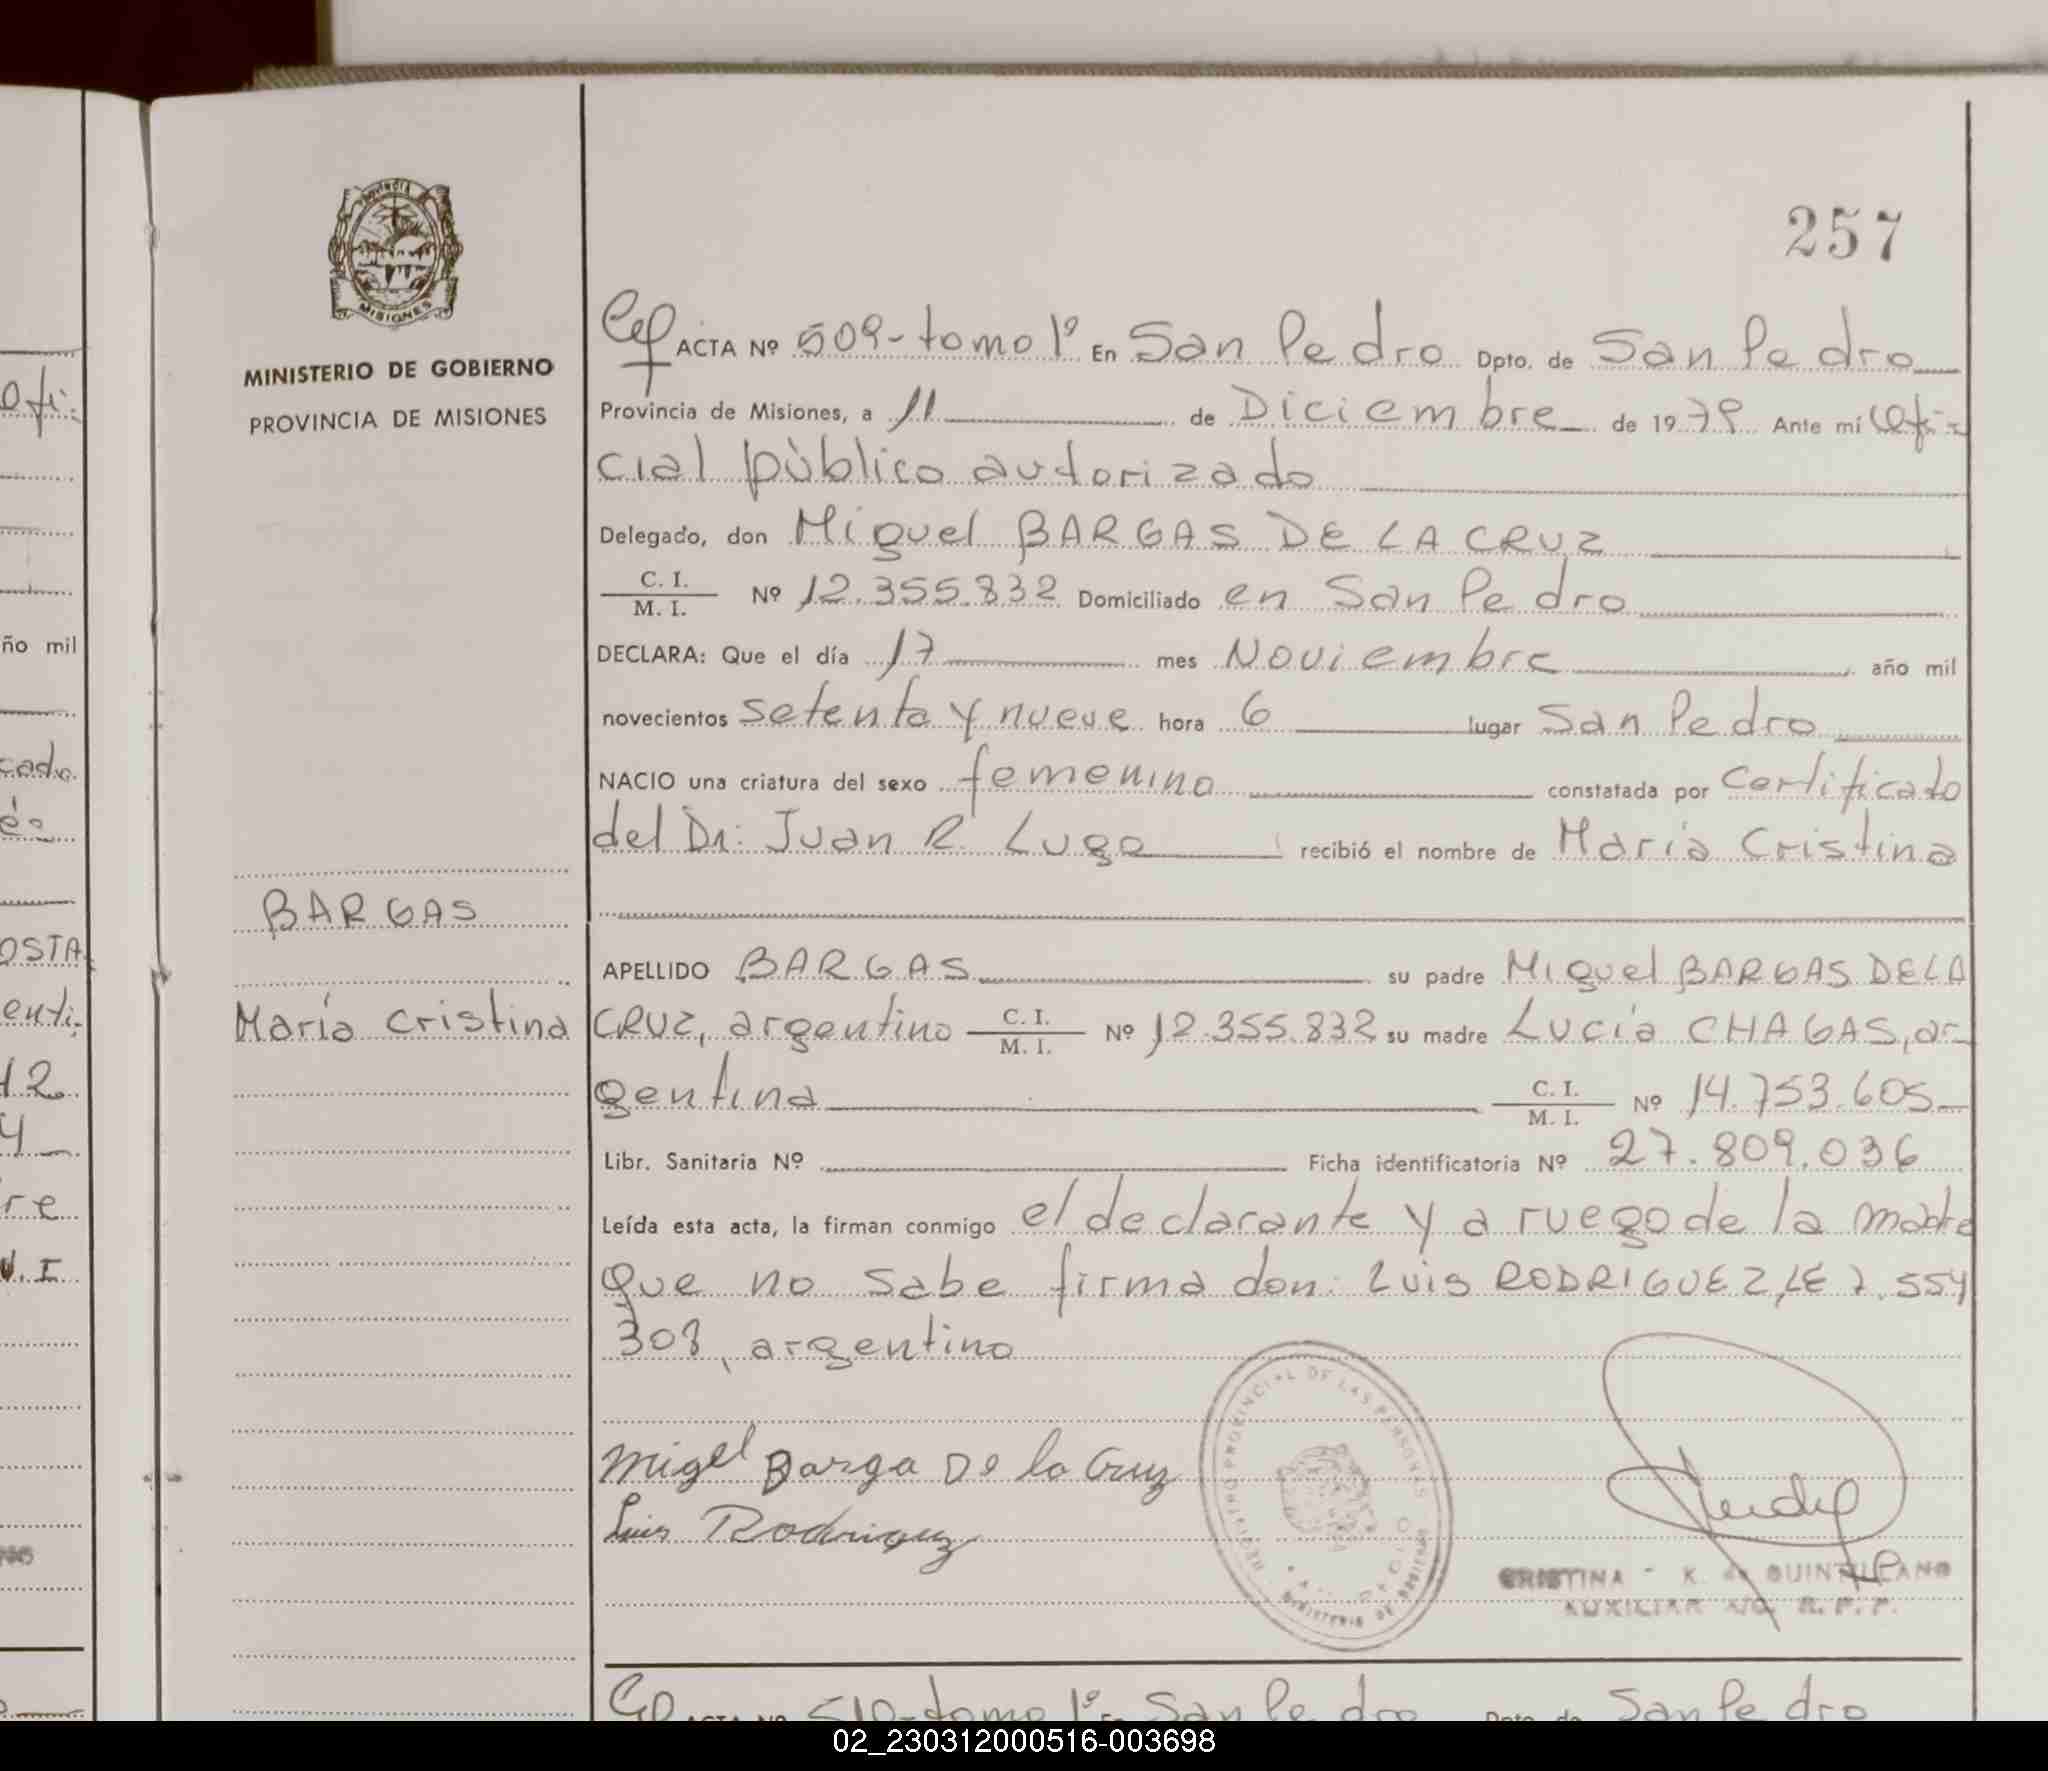 257
Provincia
MISIONES
MINISTERIO DE GOBIERNO
PROVINCIA DE MISIONES
BARGAS
María Cristina
ACTA Nº 509-tomo 1º En San Pedro Dpto. de San Pedro
Provincia de Misiones, a 11 de Diciembre de 1979 Ante mí Ofi-
cial público autorizado
Delegado, don Miguel BARGAS DE LA CRUZ
C. I.
M. I. Nº 12.355.832 Domiciliado en San Pedro
DECLARA: Que el día 17 mes Noviembre año mil
novecientos setenta y nueve hora 6 lugar San Pedro
NACIO una criatura del sexo femenino constatada por certificado
del Dr. Juan R. Lugo recibió el nombre de María Cristina
APELLIDO BARGAS su padre Miguel BARGAS DE LA
CRUZ, argentino C. I. M. I. Nº 12.355.832 su madre Lucía CHAGAS, ar-
gentina C. I. M. I. Nº 14.753.605
Libr. Sanitaria Nº Ficha identificatoria Nº 27.809.036
Leída esta acta, la firman conmigo el declarante y a ruego de la madre
que no sabe firma don: Luis RODRIGUEZ, LE 7.554
308, argentino
Migel Barga De la Cruz
Luis Rodriguez
REGISTRO PROVINCIAL DE LAS PERSONAS
MINISTERIO DE GOBIERNO
CRISTINA K. de QUINTILIANO
AUXILIAR A/C. R. P. P.
ACTA Nº 510-tomo 1º En San Pedro Dpto. de San Pedro
Ofi-
ño mil
cado
OSTA
enti-
12
4
re
M. I
02_230312000516-003698